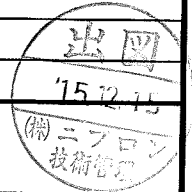 出図
'15.12.15
(株)ニフロン
技術管理